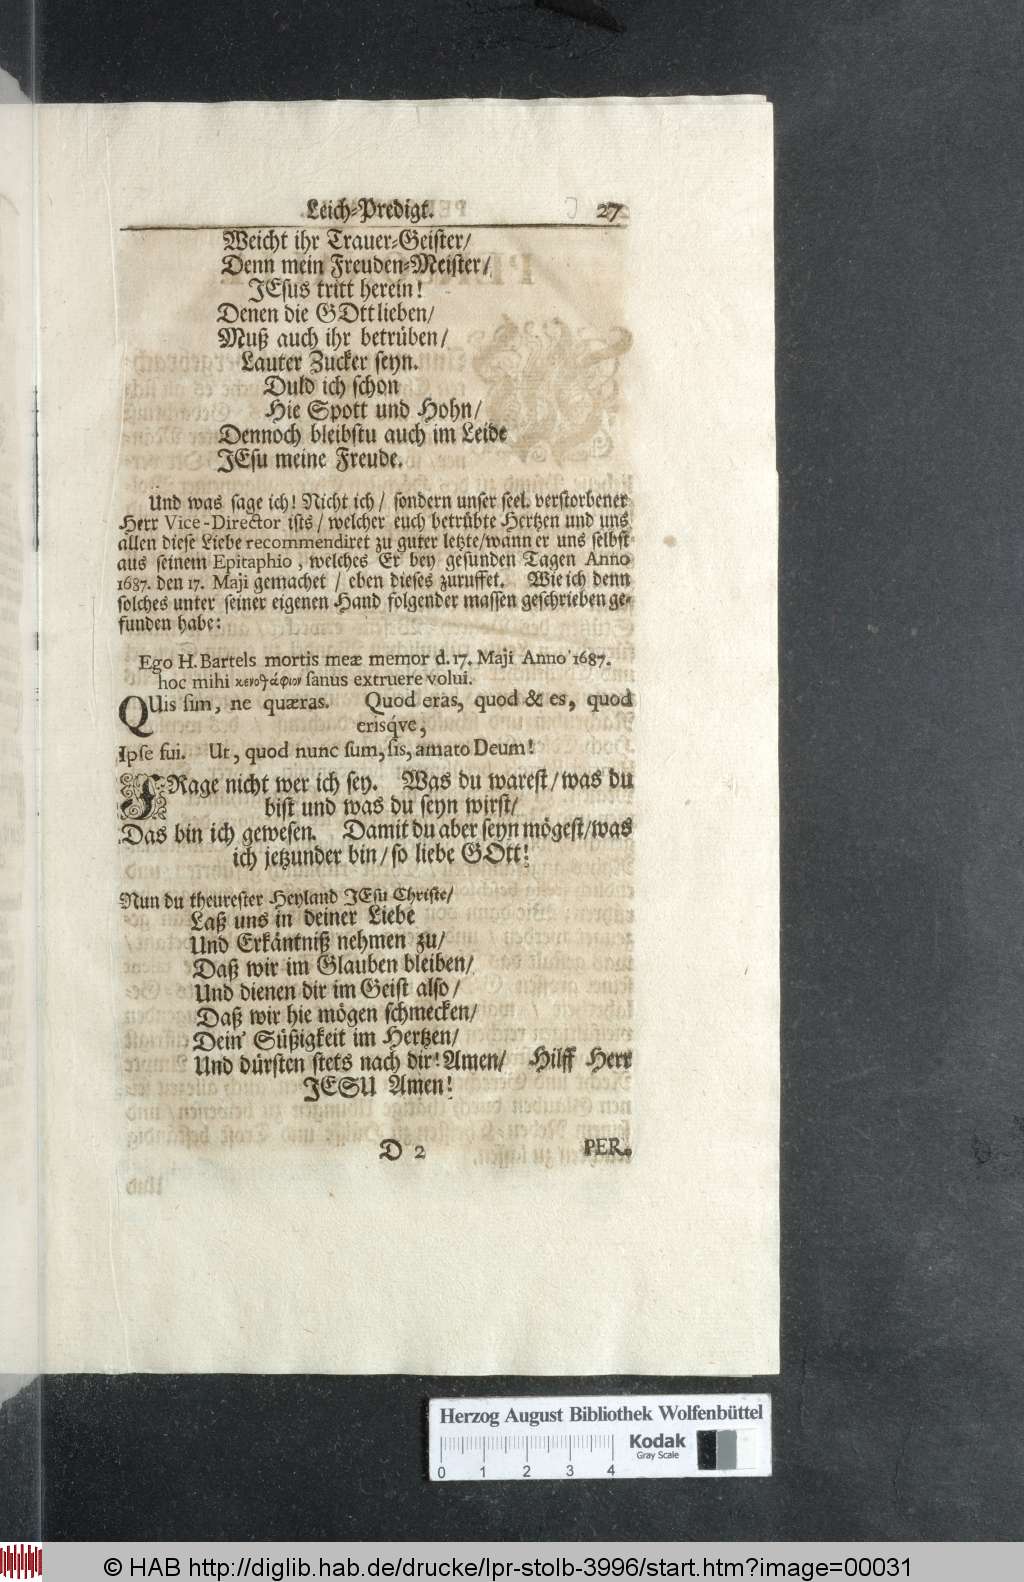 Leich-Predigt. 27
Weicht ihr Trauer-Geister/
Denn mein Freuden-Meister/
JEsus tritt herein!
Denen die GOtt lieben/
Muß auch ihr betrüben/
Lauter Zucker seyn.
Duld ich schon
Hie Spott und Hohn/
Dennoch bleibstu auch im Leide
JEsu meine Freude.
Und was sage ich! Nicht ich/ sondern unser seel. verstorbener
Herr Vice-Director ists/ welcher euch betrübte Hertzen und uns
allen diese Liebe recommendiret zu guter letzte/wann er uns selbst
aus seinem Epitaphio, welches Er bey gesunden Tagen Anno
1687. den 17. Maji gemachet / eben dieses zuruffet. Wie ich denn
solches unter seiner eigenen Hand folgender massen geschrieben ge-
funden habe:
Ego H. Bartels mortis meæ memor d. 17. Maji Anno 1687.
hoc mihi κενοτάφιον sanus extruere volui.
QUis sim, ne quæras. Quod eras, quod & es, quod
erisq́ve,
Ipse fui. Ut, quod nunc sum, sis, amato Deum!
FRage nicht wer ich sey. Was du warest/was du
bist und was du seyn wirst/
Das bin ich gewesen. Damit du aber seyn mögest/was
ich jetzunder bin/so liebe GOtt!
Nun du theurester Heyland JEsu Christe/
Laß uns in deiner Liebe
Und Erkäntniß nehmen zu/
Daß wir im Glauben bleiben/
Und dienen dir im Geist also/
Daß wir hie mögen schmecken/
Dein' Süßigkeit im Hertzen/
Und dürsten stets nach dir! Amen/ Hilff Herr
JESU Amen!
D 2 PER-
Herzog August Bibliothek Wolfenbüttel
Kodak
Gray Scale
0 1 2 3 4
© HAB http://diglib.hab.de/drucke/lpr-stolb-3996/start.htm?image=00031